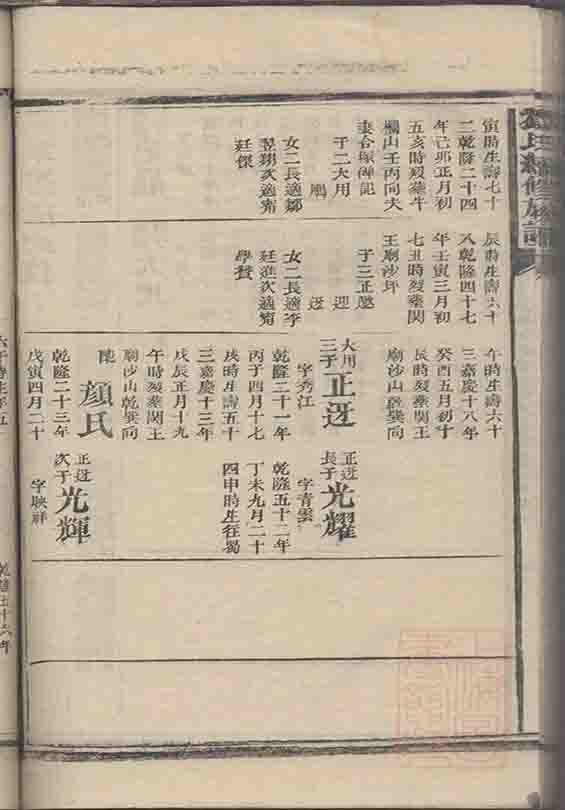 氏續修族譜
寅時生壽七十
二乾隆二十四
年己卯正月初
五亥時歿葬牛
欄山壬丙向夫
妻合塚碑記
子二大用
鵬
女二長適鄒
翌翔次適甯
廷傑
辰時生壽六十
八乾隆四十七
年壬寅三月初
七丑時歿葬関
王廟沙坪
子三正
迎
迓
女二長適李
廷進次適甯
學贊
午時生壽六十
三嘉慶十八年
癸酉五月初十
辰時歿葬関王
廟沙山乾巽向
大用
三子正迓
字秀江
乾隆二十一年
丙子四月十七
戌時生壽五十
三嘉慶十三年
戊辰正月十九
午時歿葬関王
廟沙山乾巽向
陳顏氏
乾隆二十三年
戊寅四月二十
正迓
長子光耀
字青雲
乾隆五十二年
丁未九月二十
四申時生徃蜀
正迓
次子光輝
字映祥
乾隆五十六年